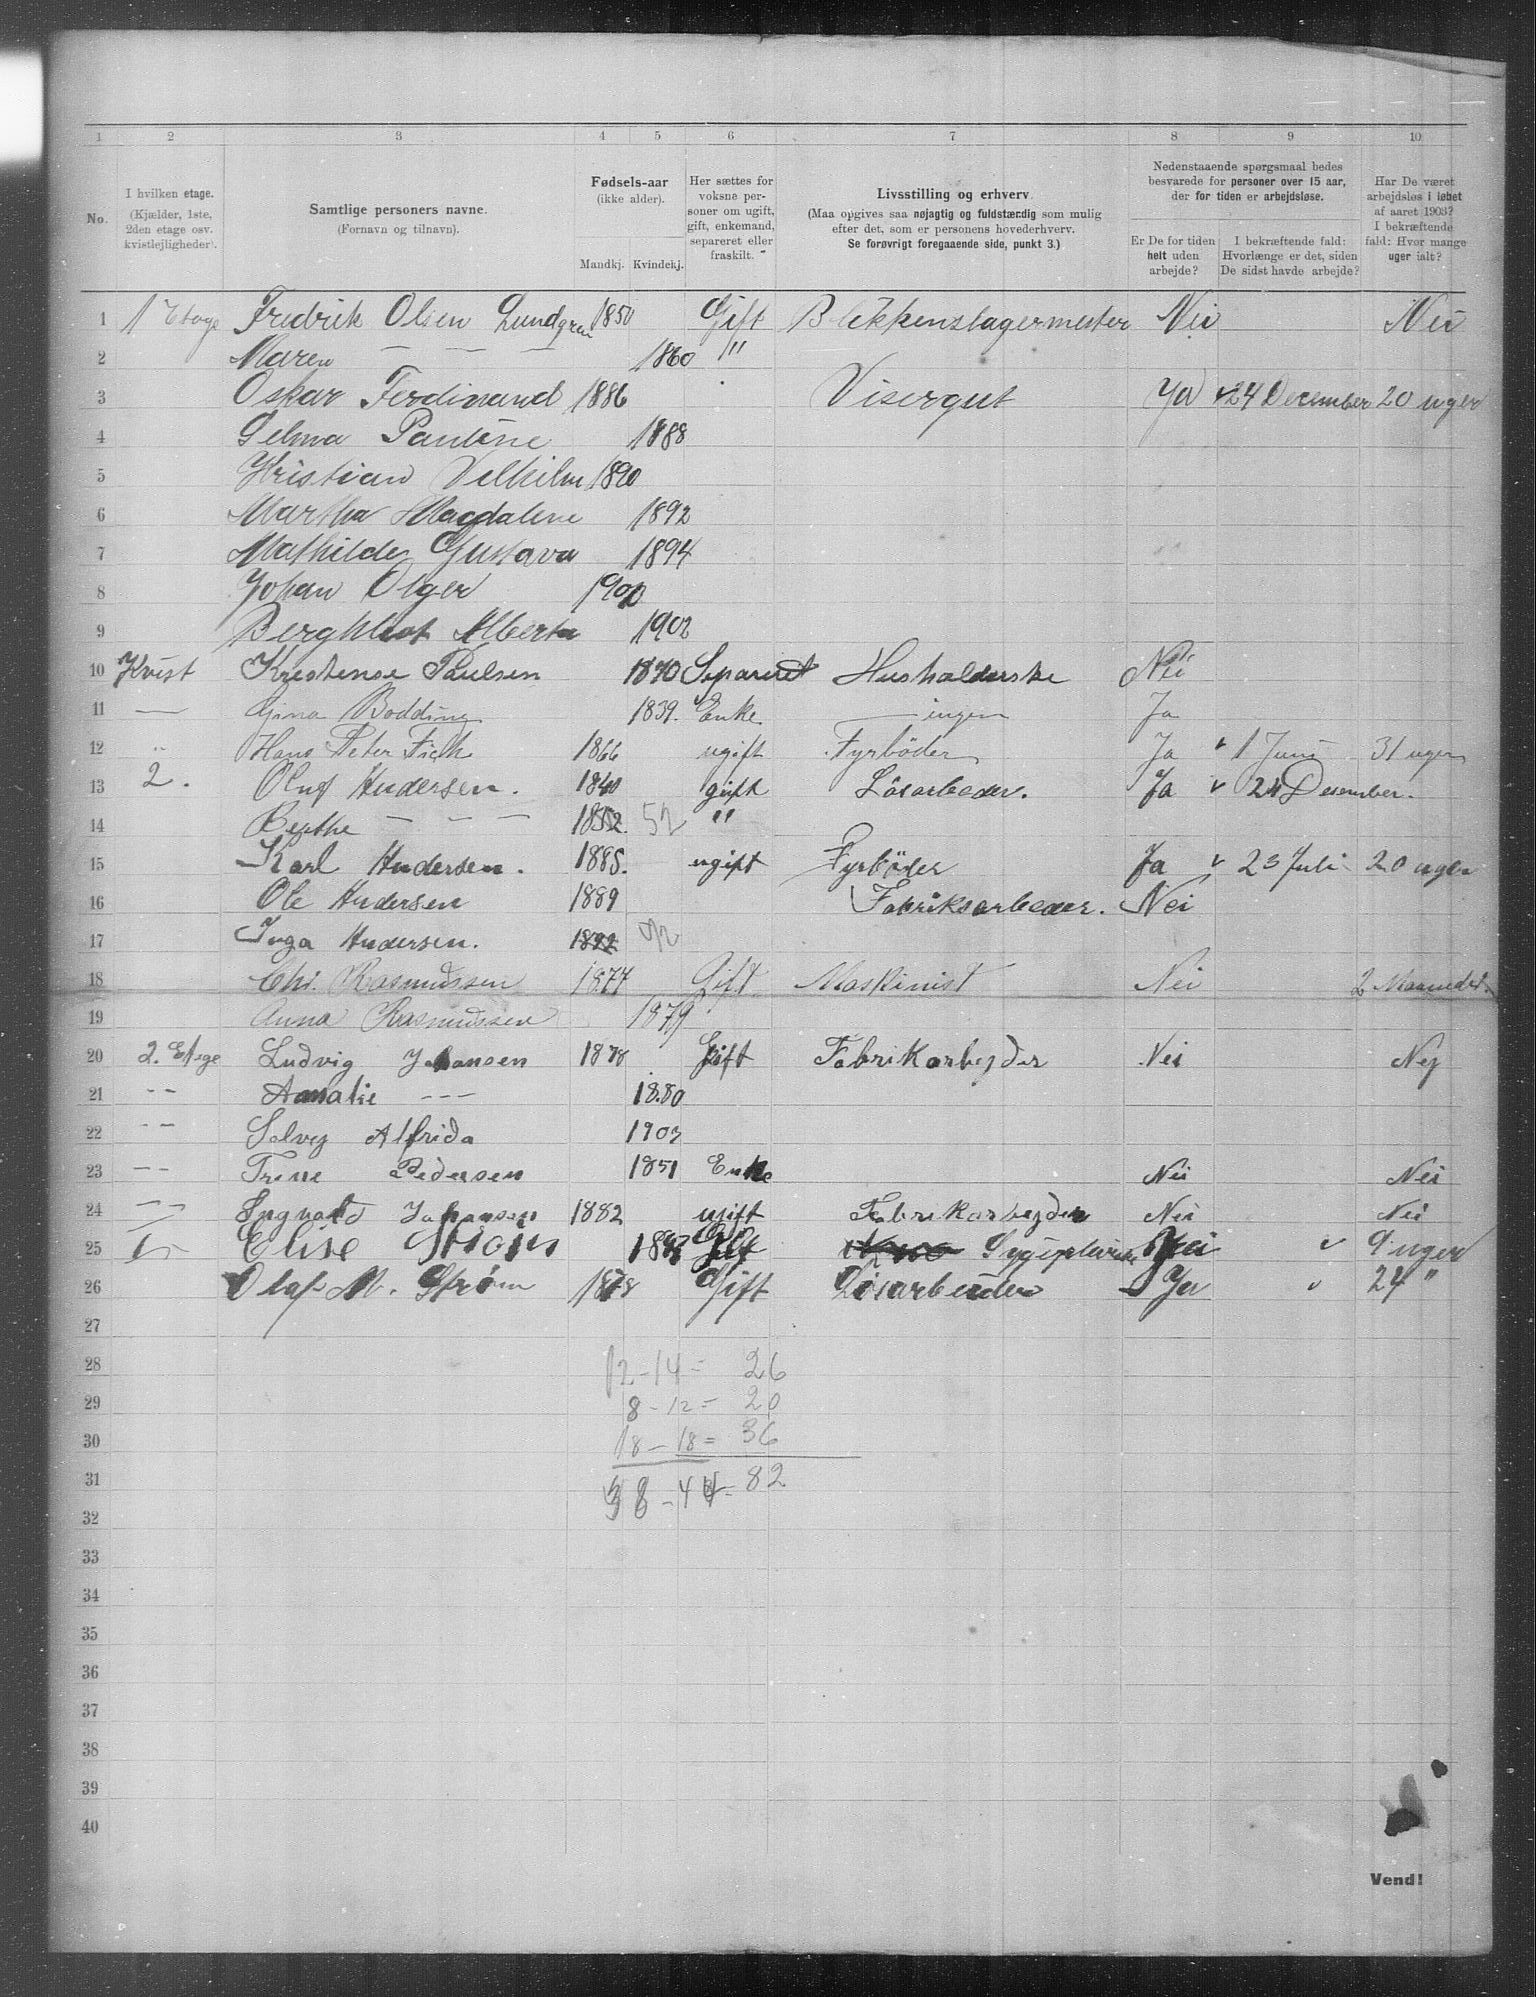 1 2 3 4 5 6 7 8 9 10
No.
I hvilken etage.
(Kjælder, 1ste,
2den etage osv.
kvistlejligheder).
Samtlige personers navne.
(Fornavn og tilnavn).
Fødsels-aar
(ikke alder).
Mandkj. Kvindekj.
Her sættes for
voksne per-
soner om ugift,
gift, enkemand,
separeret eller
fraskilt.
Livsstilling og erhverv.
(Maa opgives saa nøjagtig og fuldstændig som mulig
efter det, som er personens hovederhverv.
Se forøvrigt foregaaende side, punkt 3.)
Nedenstaaende spørgsmaal bedes
besvarede for personer over 15 aar,
der for tiden er arbejdsløse.
Er De for tiden
helt uden
arbejde?
I bekræftende fald:
Hvorlænge er det, siden
De sidst havde arbejde?
Har De været
arbejdsløs i løbet
af aaret 1903?
I bekræftende
fald: Hvor mange
uger ialt?
1 1 Etage Fredrik Olsen Lundgren 1850 Gift Blikkenslagermester Nei Nei
2 Maren — — — 1860 "
3 Oskar Ferdinand 1886 Visergut Ja 24 December 20 uger
4 Selma Pauline 1888
5 Kristian Vilhilm 1890
6 Martha Magdalene 1892
7 Mathilde Gustava 1894
8 Johan Olger 1900
9 Alberta 1902
10 Kvist Kristense Paulsen 1870 Separeret Husholderske Nei
11 — Gina Bodding 1839. Enke — ingen Ja
12 " Hans Peter Fisk 1866 ugift Fyrböder Ja 1 Juni 31 uger
13 2. Oluf Andersen. 1840 gift Lösarbeder. Ja 24 Desember.
14 Berthe — — — 1852. 52 "
15 Karl Andersen. 1885. ugift Fyrböder Ja 23 Juli 20 uger
16 Ole Andersen 1889 Fabriksarbeder. Nei
17 Inga Andersen. 1892 92
18 Chr. Rasmussen 1877 Gift Maskinist Nei 2 Maaneder.
19 Anna Rasmussen 1879
20 2. Etage Ludvig Johansen 1878 Gift Fabrikarbejder Nei Nej
21 -- Amalie --- 1880
22 -- Solvej Alfrida 1903
23 -- Trine Pedersen 1851 Enke Nei Nei
24 -- Ingvald Johansen 1882 ugift Fabrikarbejder Nei Nei
25 Elise Strøm Gift Nei 9 uger
26 Olaf M. Strøm 1878 Gift Løsarbeider Ja 24 "
27
28 12-14= 26
29 8-12= 20
30 18-18= 36
31 38-44= 82
32
33
34
35
36
37
38
39
40
Vend!